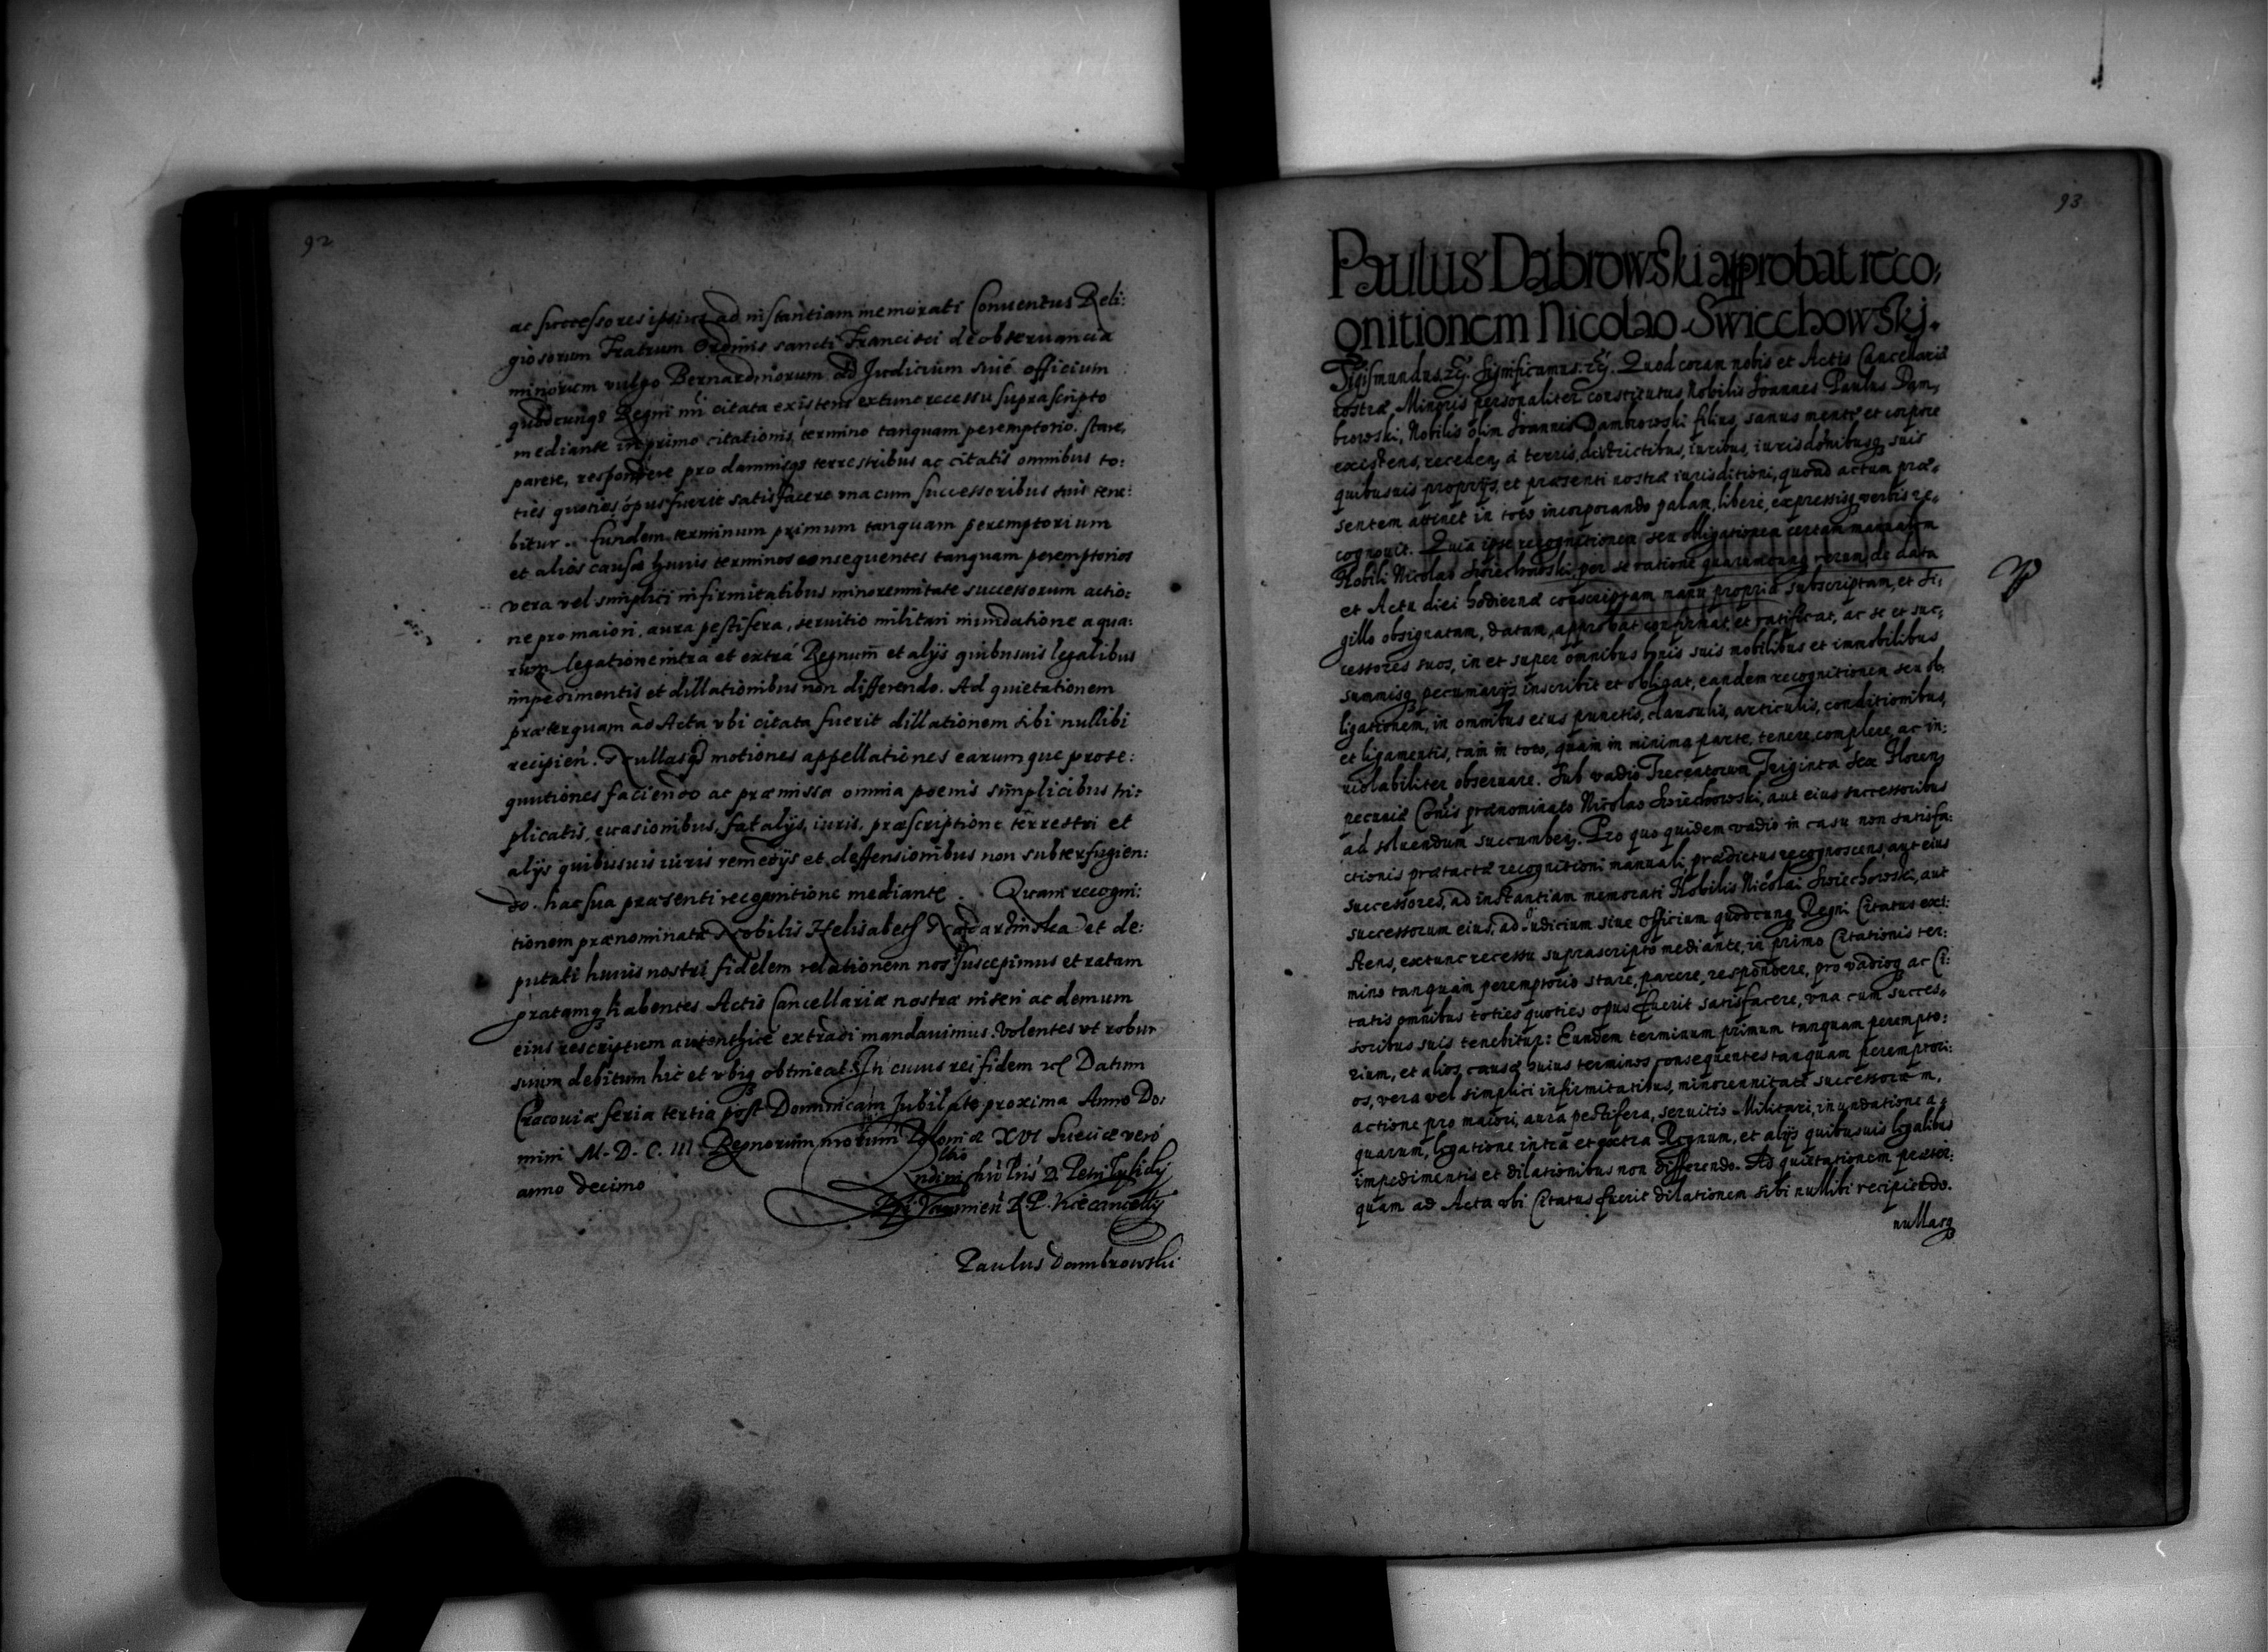 92
ac successores ipsius ad instantiam memorati Conuentus Reli:
giosorum Fratrum Ordinis sancti Francisci de obseruancia
minorum vulgo Bernardinorum ad Judicium siue officium
quodcunq3 Regni citata existens extunc recessu suprascripto
mediante in primo citationis termino tanquam peremptorio. stare,
parere, respondere pro damnisq3 terrestribus ac citatis omnibus to:
ties quoties opus fuerit satisfacere vna cum successoribus suis tene:
bitur. Eundem terminum primum tanquam peremptorium
et alios causæ huius terminos consequentes tanquam peremptorios
vera vel simplici infirmitatibus minorennitate successorum actio:
ne pro maiori, aura pestifera, seruitio militari inundatione aqua:
rum legatione intra et extra Regnum et alijs quibusuis legalibus
inpedimentis et dillationibus non differendo. Ad quietationem
præterquam ad Acta vbi citata fuerit dillationem sibi nullibi
recipien. Nullasq3 motiones appellationes earumque prose:
quutiones faciendo ac præmissa omnia poenis simplicibus tri:
plicatis, euasionibus, fatalijs, iuris, præscriptione terrestri et
alijs quibusuis iuris remedijs et deffensionibus non subterfugien:
do. hac sua præsenti recognitione mediante. Quam recogni:
tionem prænominatæ Nobilis Helisabeth et de:
putati huius nostri fidelem relationem nos suscepimus et ratam
gratamq3 habentes Actis Cancellariæ nostræ inseri ac demum
eius rescriptum autenthice extradi mandauimus. Volentes vt robur
suum debitum hic et vbiq3 obtineat. In cuius rei fidem Datum
Cracouiæ feria tertia post Dominicam Jubilate proxima Anno Do:
mini M. D. C. III. Regnorum nrorum Poloniæ XVI Sueciæ vero
anno decimo
D. Petri Tylicky
R P. Vicecancelly
Paulus Dambrowski
93
Paulus Dabrowski approbat reco,
gnitionem Nicolao Swiechowskj.
Sigismundus. Significamus. Quod coram nobis et Actis Cancellariæ
nostræ Minoris personaliter constitutus Nobilis Joannes Paulus Dam,
browski, Nobilis olim Joannis Dambrowski filius, sanus mente et corpore
existens, receden á terris, districtibus, iuribus, iurisdictionibusq3 suis
quibusuis proprijs, et præsenti nostræ iurisdictioni, quoad actum præ,
sentem attinet in toto incorporando palam, libere, expressisq3 verbis re,
cognouit. Quia ipse recognitionem seu obligationem certam manualem
Nobili Nicolao Swiechowski per se ratione quarumcunq3 rerum, de data
et Actu diei hodiernæ conscriptam manu propria subscriptam, et si:
gillo obsignatam, datam, approbat confirmat et ratificat, ac se et suc:
cessores suos, in et super omnibus bonis suis mobilibus et immobilibus
summisq3 pecuniarijs inscribit et obligat, eandem recognitionem seu ob,
ligationem, in omnibus eius punctis, clausulis, articulis, conditionibus,
et ligamentis, tam in toto, quam in minima parte, tenere complere, ac in:
uiolabiliter obseruare. Sub vadio Trecentorum Triginta Sex Floren
pecuniæ Cois prænominato Nicolao Swiechowski, aut eius successoribus
ad soluendum succumben. Pro quo quidem vadio in casu non satisfa:
ctionis prætactæ recognitioni manuali prædictus recognoscens, aut eius
successores, ad instantiam memorati Nobilis Nicolai Swiechowski, aut
successorum eius, ad Judicium siue Officium quodcunq3 Regni Citatus exi:
stens, extunc recessu suprascripto mediante, in primo Citationis ter:
mino tanquam peremptorio stare, parere, respondere, pro vadioq3 ac Ci:
tatis omnibus toties quoties opus fuerit satisfacere, vna cum succes,
soribus suis tenebitur: Eundem terminum primum tanquam perempto:
rium, et alios causæ huius terminos consequentes tanquam peremptori:
os, vera vel simplici infirmitatibus, minorennitate successorum,
actione pro maiori, aura pestifera, seruitio Militari, inundatione a,
quarum, legatione intra et extra Regnum, et alijs quibusuis legalibus
impedimentis et dilationibus non differendo. Ad quietationem præter:
quam ad Acta vbi Citatus fuerit dilationem sibi nullibi recipiendo.
nullasq3